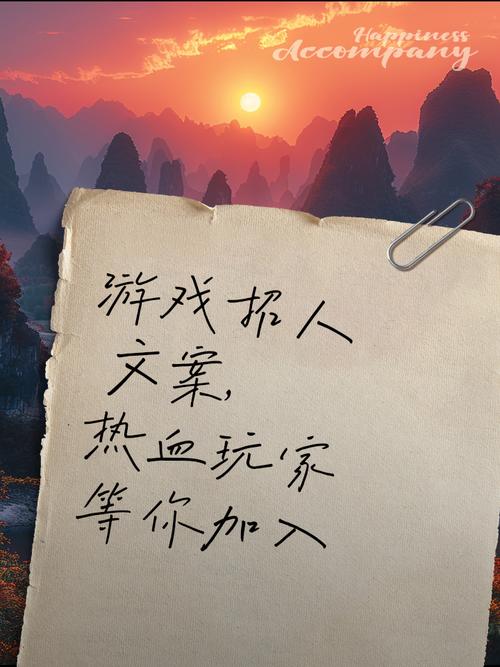 Happiness
Accompany
游戏招人
文案,
热血玩家
等你加入